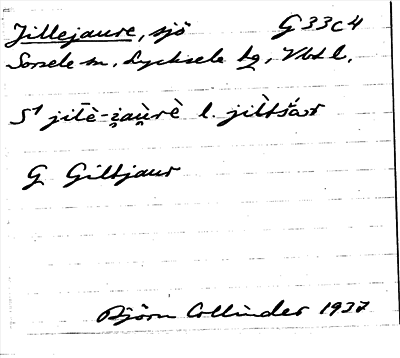 Jillejaure, sjö G 33c4
Sorsele sn. Lycksele lg, Vbtl.
S1 jilè-i̯au̯rè l. jiltšår
G Giltjaur
Björn Collinder 1937